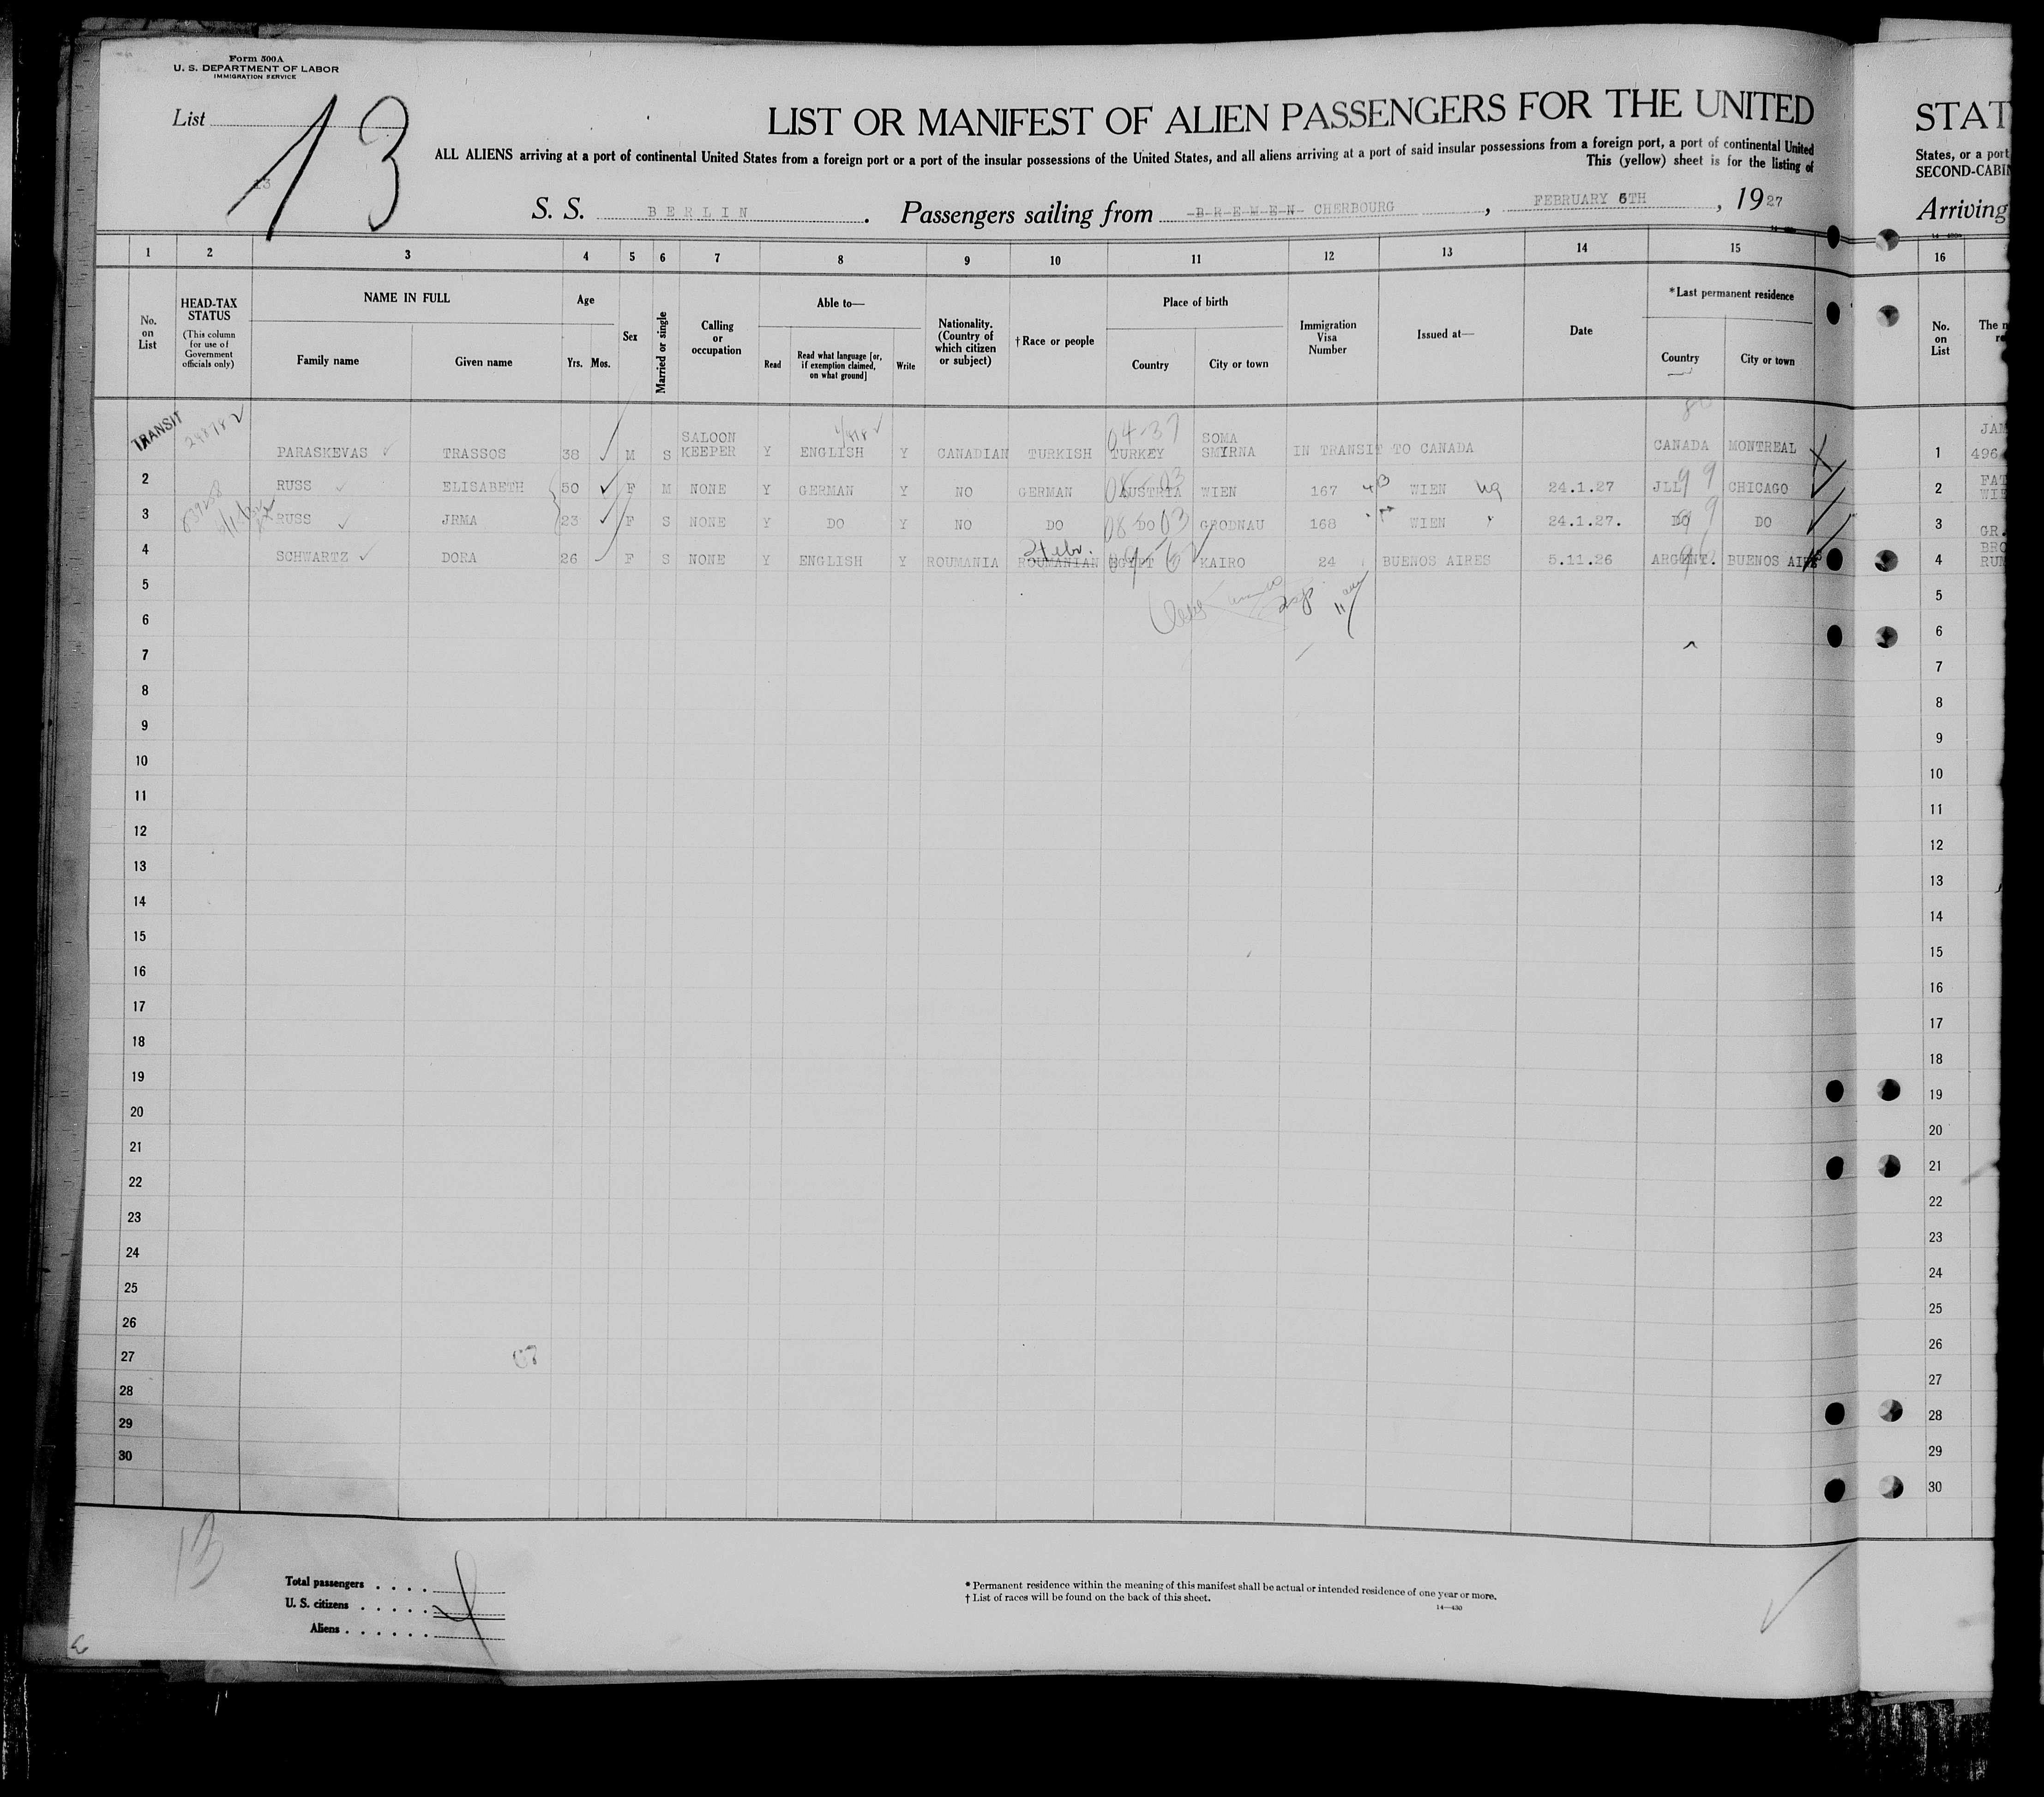 Form 500A
U. S. DEPARTMENT OF LABOR
IMMIGRATION SERVICE
List 13
13
LIST OR MANIFEST OF ALIEN PASSENGERS FOR THE UNITED
ALL ALIENS arriving at a port of continental United States from a foreign port or a port of the insular possessions of the United States, and all aliens arriving at a port of said insular possessions from a foreign port, a port of continental United
This (yellow) sheet is for the listing of
S. S. BERLIN. Passengers sailing from BREMEN CHERBOURG, FEBRUARY 6TH, 1927
1 2 3 4 5 6 7 8 9 10 11 12 13 14 15
No. on List
HEAD-TAX STATUS
(This column for use of Government officials only)
NAME IN FULL
Family name Given name
Age
Yrs. Mos.
Sex
Married or single
Calling or occupation
Able to—
Read
Read what language [or, if exemption claimed, on what ground]
Write
Nationality. (Country of which citizen or subject)
† Race or people
Place of birth
Country City or town
Immigration Visa Number
Issued at—
Date
*Last permanent residence
Country City or town
TRANSIT PARASKEVAS TRASSOS 38 M S SALOON KEEPER Y ENGLISH Y CANADIAN TURKISH TURKEY SOMA SMYRNA IN TRANSIT TO CANADA CANADA MONTREAL
2 RUSS ELISABETH 50 F M NONE Y GERMAN Y NO GERMAN AUSTRIA WIEN 167 WIEN 24.1.27 JLL CHICAGO
3 RUSS JRMA 23 F S NONE Y DO Y NO DO DO GRODNAU 168 WIEN 24.1.27. DO DO
4 SCHWARTZ DORA 26 F S NONE Y ENGLISH Y ROUMANIA ROUMANIAN Hebr. EGYPT KAIRO 24 BUENOS AIRES 5.11.26 ARGENT. BUENOS AIRES
5
6
7
8
9
10
11
12
13
14
15
16
17
18
19
20
21
22
23
24
25
26
27
28
29
30
13
Total passengers . . . .
U. S. citizens . . . . .
Aliens . . . . . .
* Permanent residence within the meaning of this manifest shall be actual or intended residence of one year or more.
† List of races will be found on the back of this sheet.
14—430
STAT
States, or a port
SECOND-CABIN
Arriving
16
No. on List
The n
1 JAM
496
2 FAT
WIE
3 GR.
4 BRO
RUM
5
6
7
8
9
10
11
12
13
14
15
16
17
18
19
20
21
22
23
24
25
26
27
28
29
30